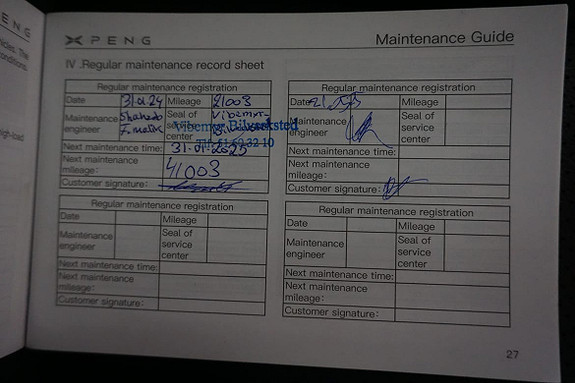 ENG
XPENG
Maintenance Guide
IV .Regular maintenance record sheet
Regular maintenance registration
Date 31.01.24 Mileage 21003
Maintenance engineer Seal of service center
Vibemyr Bilverksted
Next maintenance time: 31.01.2025
Next maintenance mileage: 41003
Customer signature:
Regular maintenance registration
Date Mileage
Maintenance engineer Seal of service center
Next maintenance time:
Next maintenance mileage:
Customer signature:
Regular maintenance registration
Date Mileage
Maintenance engineer Seal of service center
Next maintenance time:
Next maintenance mileage:
Customer signature:
Regular maintenance registration
Date Mileage
Maintenance engineer Seal of service center
Next maintenance time:
Next maintenance mileage:
Customer signature:
27